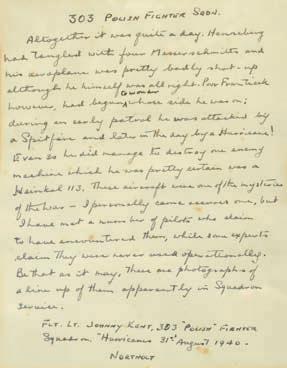 303 POLISH FIGHTER SQDN.
Altogether it was quite a day. Henneberg
had tangled with four Messerschmitts and
his aeroplane was pretty badly shot-up
although he himself was all right. Poor Frantisek
however, had begun to wonder whose side he was on;
during an early patrol he was attacked by
a Spitfire and later in the day by a Hurricane!
Even so he did manage to destroy one enemy
machine which he was pretty certain was a
Heinkel 113. These aircraft were one of the mysteries
of the War – I personally came across one, but
I have met a number of pilots who claim
to have encountered them, while some experts
claim they were never used operationally.
Be that as it may, there are photographs of
a line up of them apparently in Squadron
service.
FLT. LT. JOHNNY KENT, 303 "POLISH" FIGHTER
Squadron. "Hurricanes" 31st August 1940.
NORTHOLT